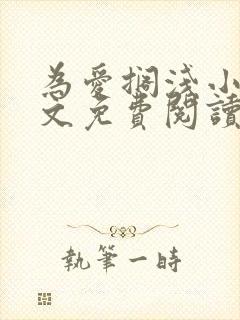 為愛擱淺小
文免費閱讀
執筆一時